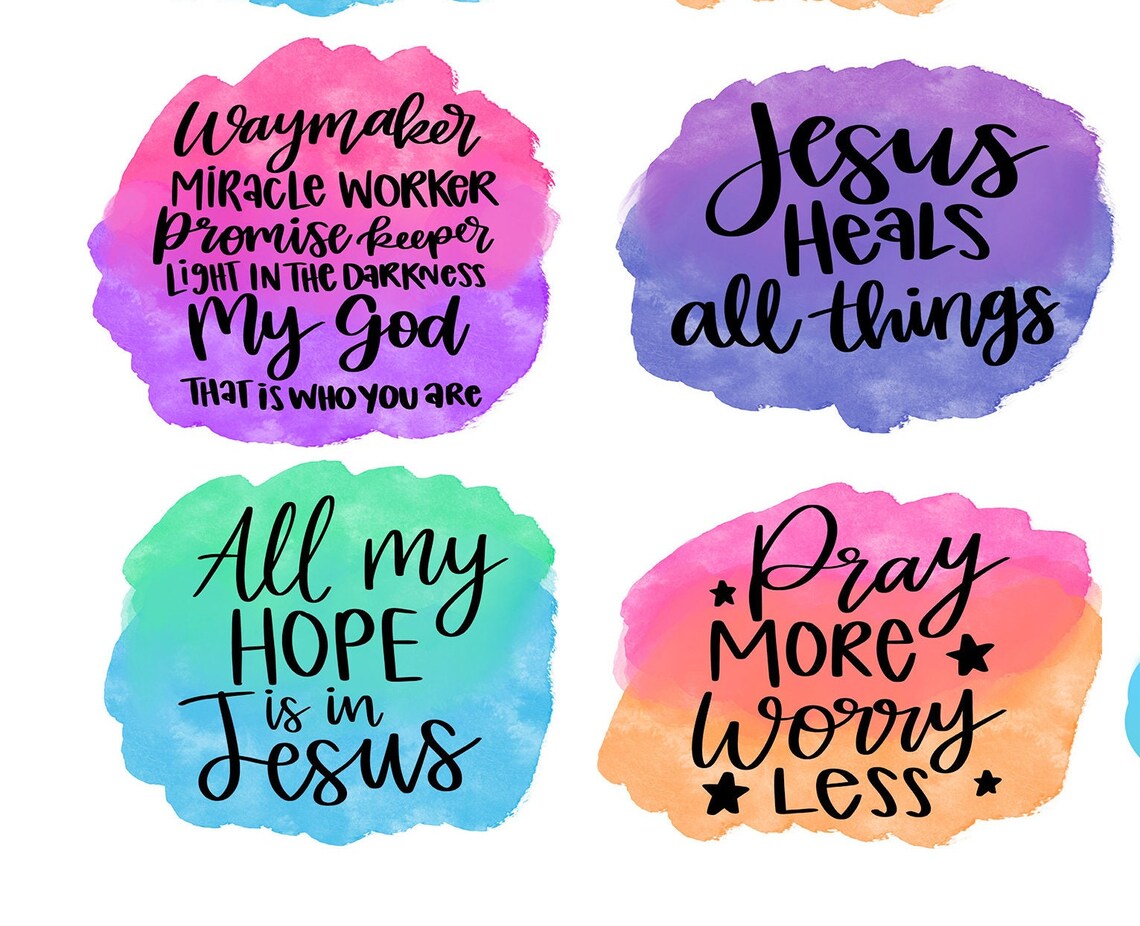 Waymaker
MiRacLe WORKER
Promise keeper
LigHT IN THE DARKNESS
My God
THat is WHO YOU aRe
Jesus
HeaLS
all things
All my
HOPE
is in
Jesus
Pray
MORe
Worry
Less